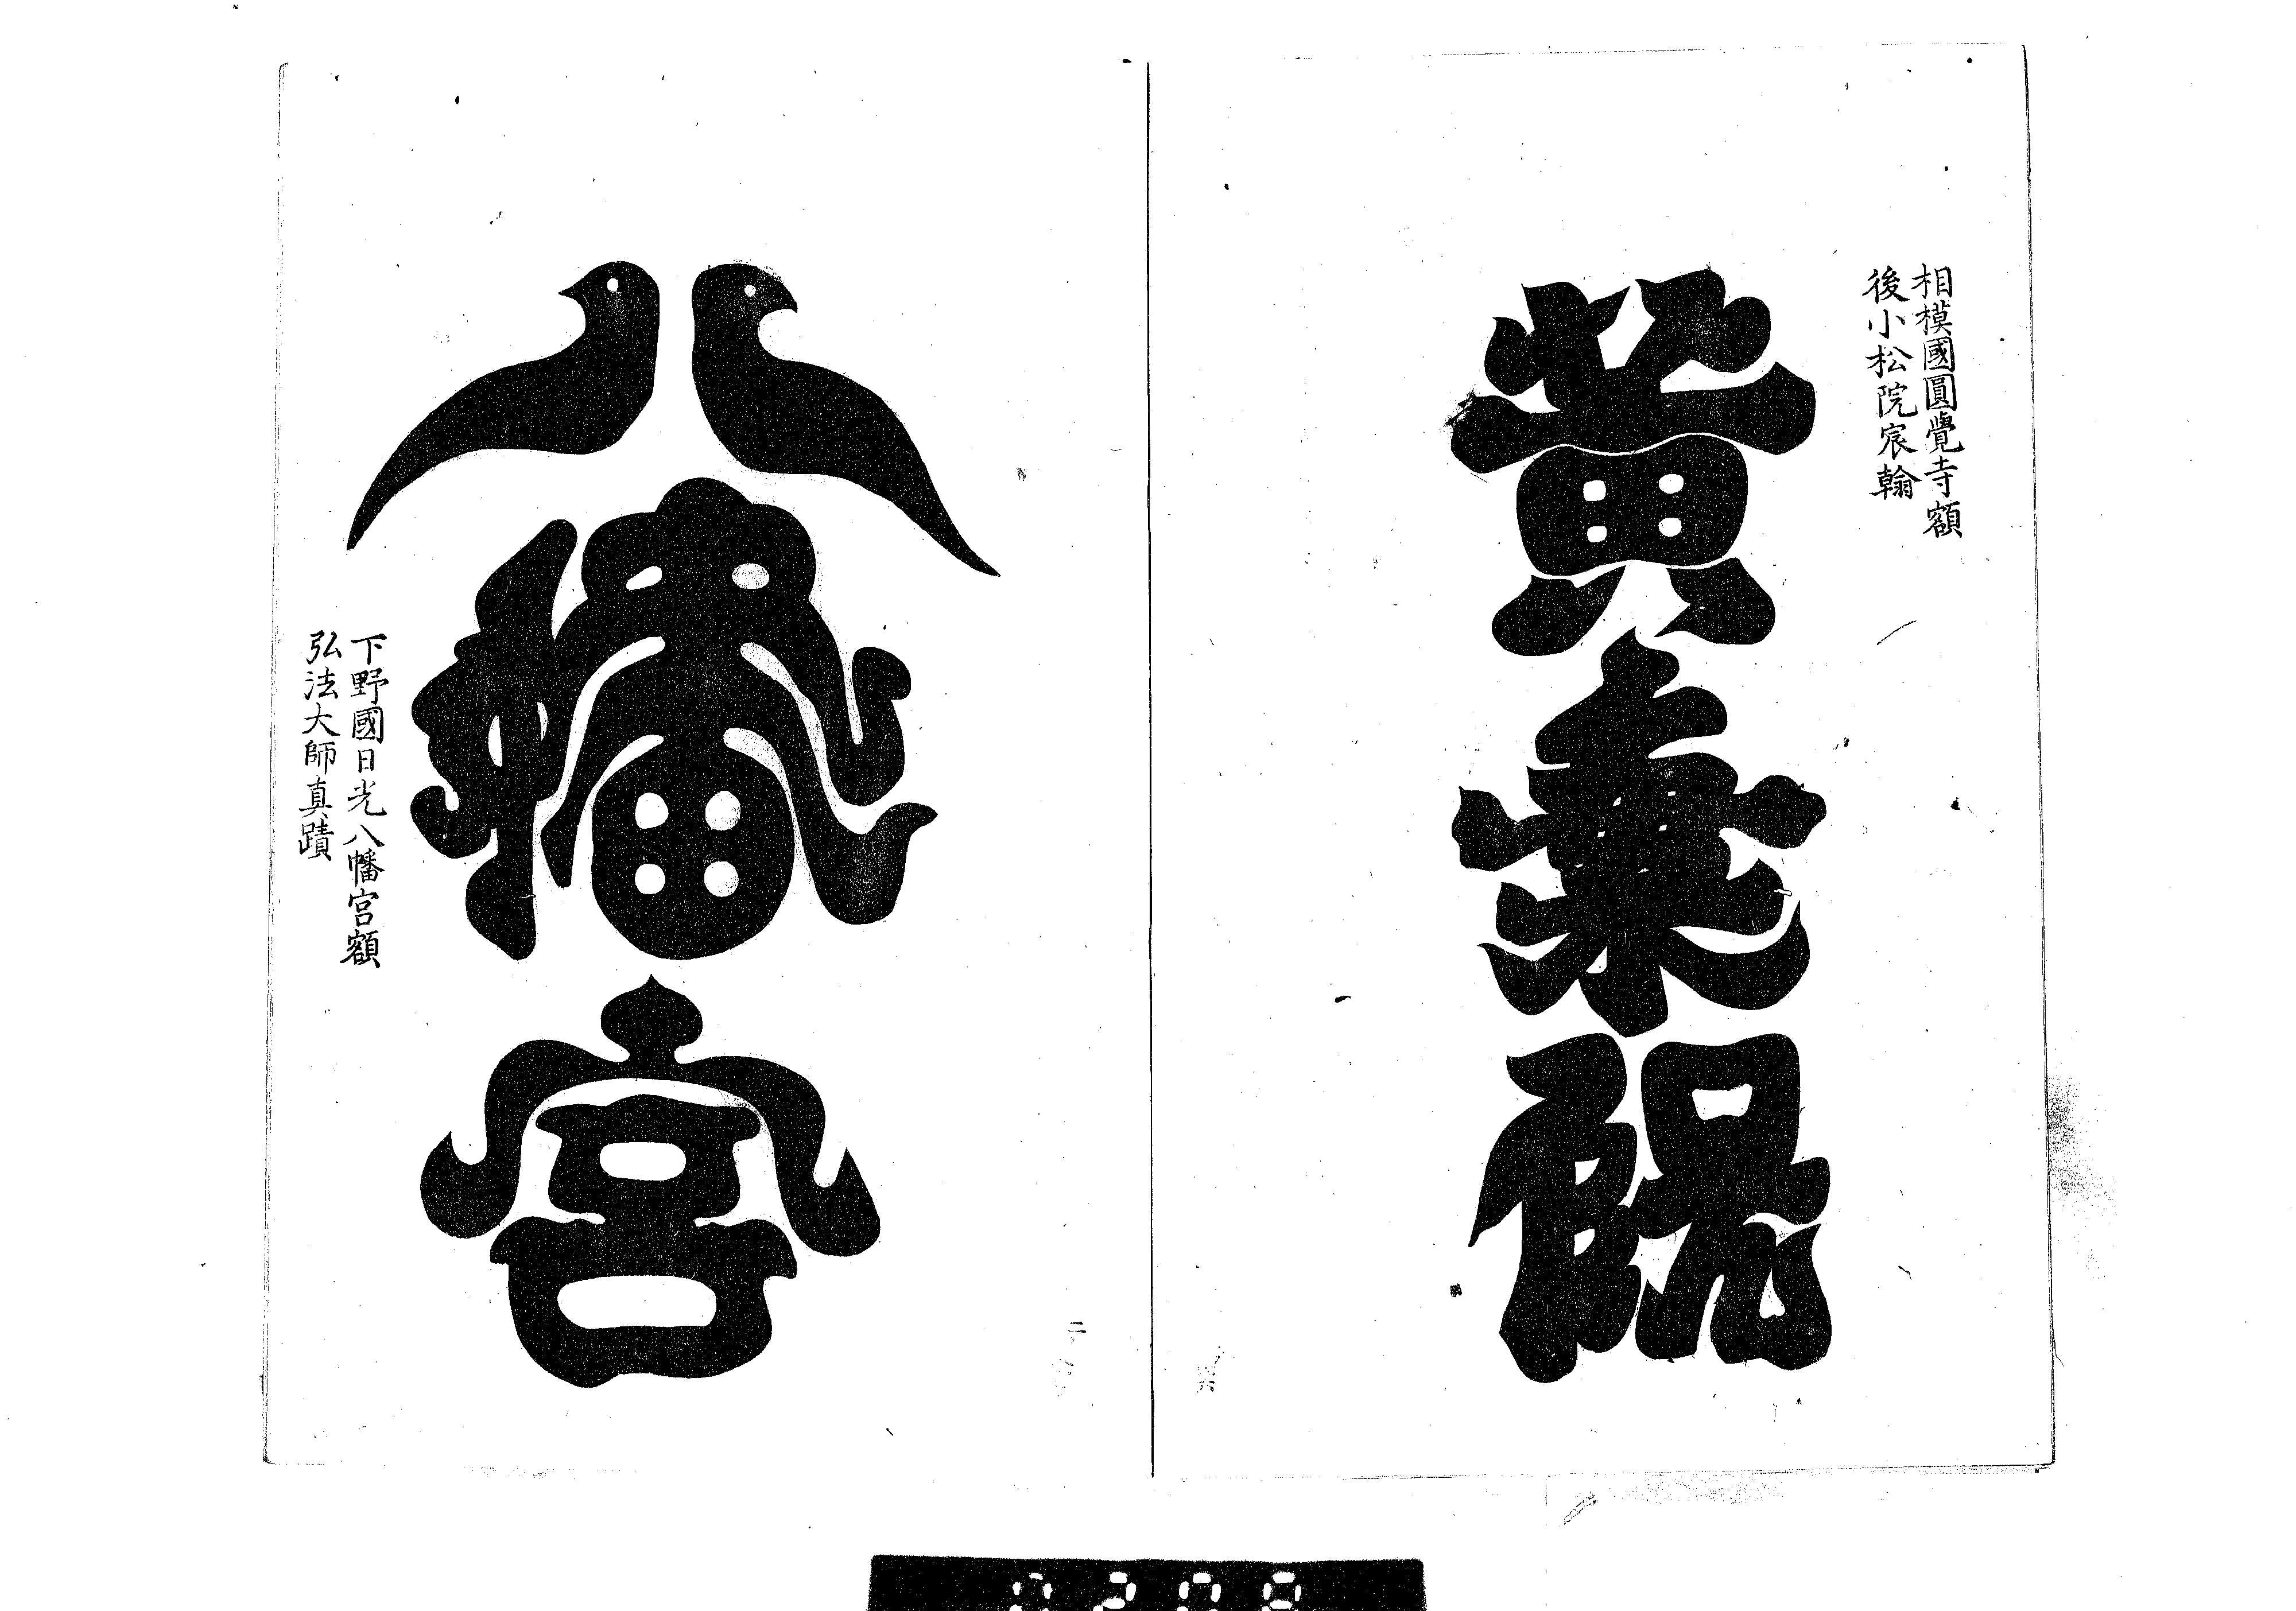 相模國圓覺寺額
後小松院宸翰
黄梅院
八幡宮
下野國日光八幡宮額
弘法大師真蹟